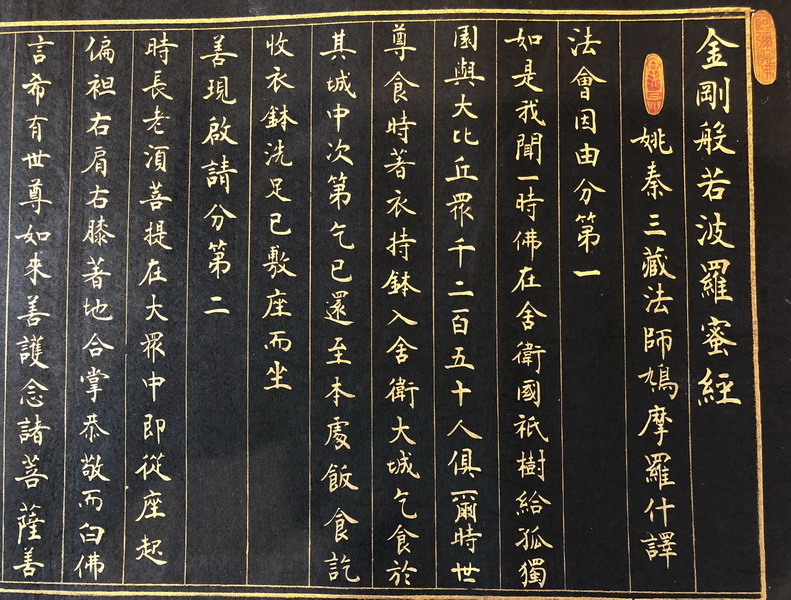 金剛般若波羅蜜經
姚秦三藏法師鳩摩羅什譯
法會因由分第一
如是我聞一時佛在舍衛國祇樹給孤獨
園與大比丘眾千二百五十人俱爾時世
尊食時著衣持鉢入舍衛大城乞食於
其城中次第乞已還至本處飯食訖
收衣鉢洗足已敷座而坐
善現啟請分第二
時長老須菩提在大眾中即從座起
偏袒右肩右膝著地合掌恭敬而白佛
言希有世尊如來善護念諸菩薩善